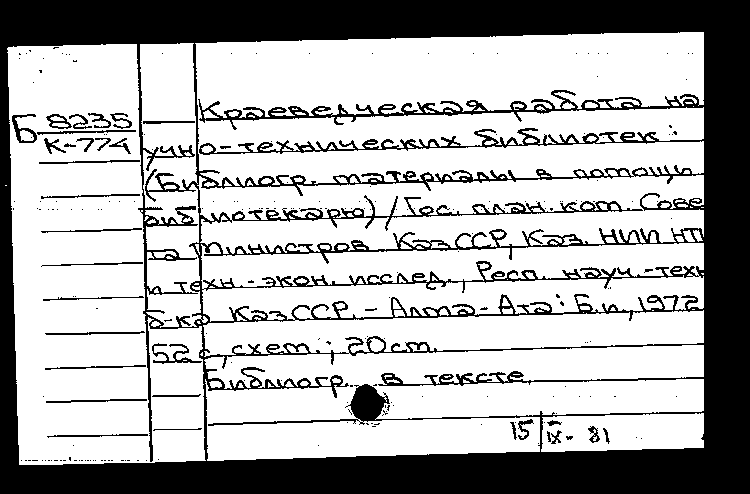 Б 8235
К-774
Краеведческая работа на
учно-технических библиотек:
(Библиогр. материалы в помощь
библиотекарю) / Гос. план. ком. Сове
та Министров КазССР, Каз. НИИ НТИ
и техн.-экон. исслед., Респ. науч.-техн
б-ка КазССР. - Алма-Ата: Б.и., 1972
52 с, схем.; 20см.
Библиогр. в тексте.
15 | IX - 81